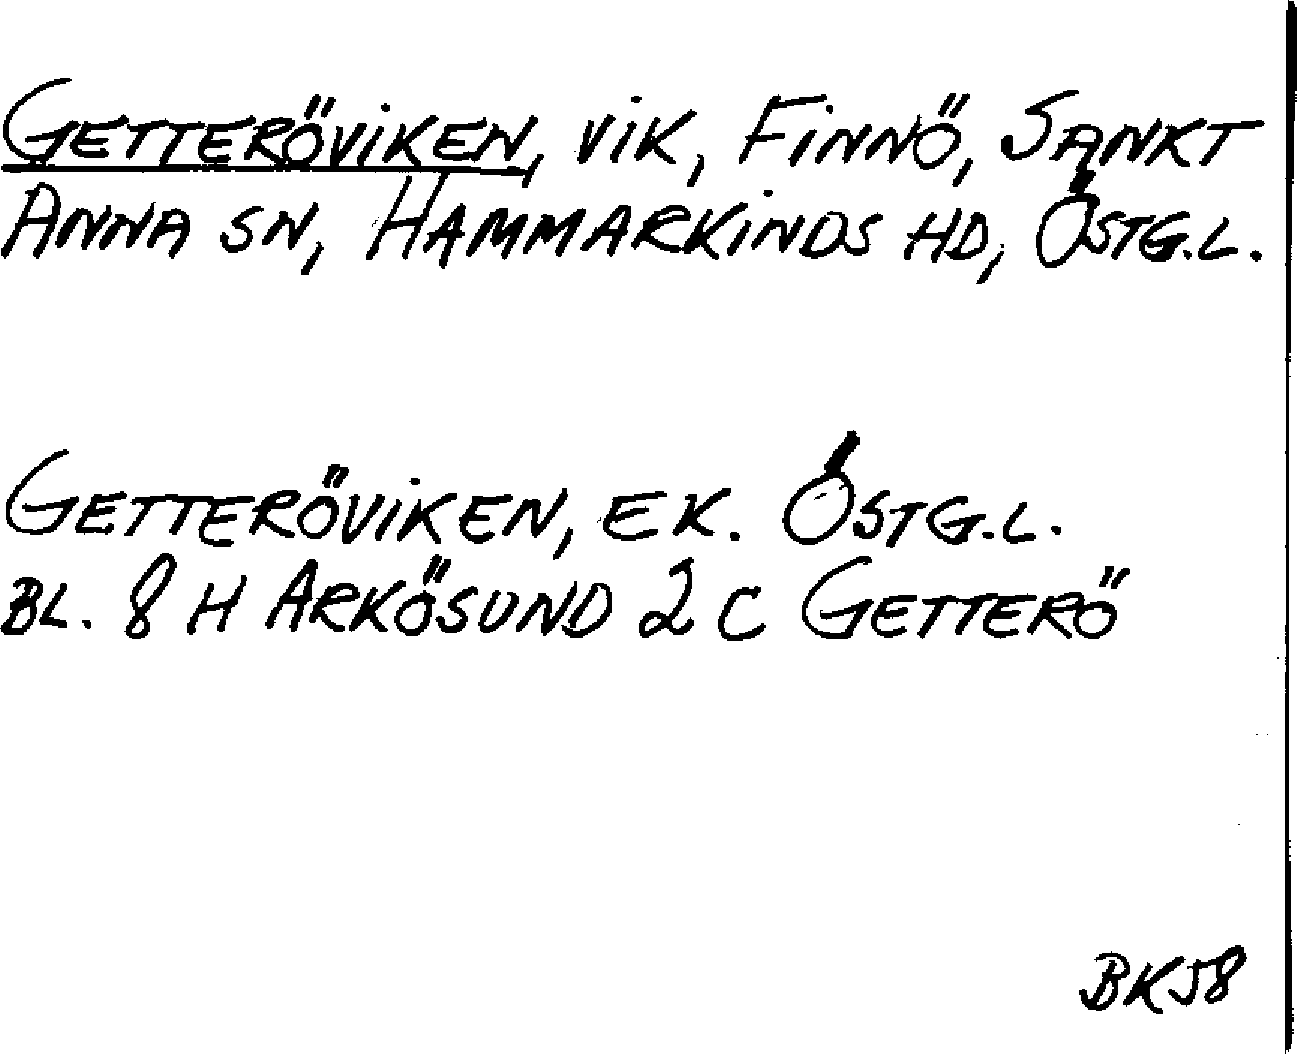 GETTERÖVIKEN, VIK, FINNÖ, SANKT
ANNA SN, HAMMARKINDS HD, ÖSTG.L.
GETTERÖVIKEN, EK. ÖSTG.L.
BL. 8 H ARKÖSUND 2 C GETTERÖ
BK58